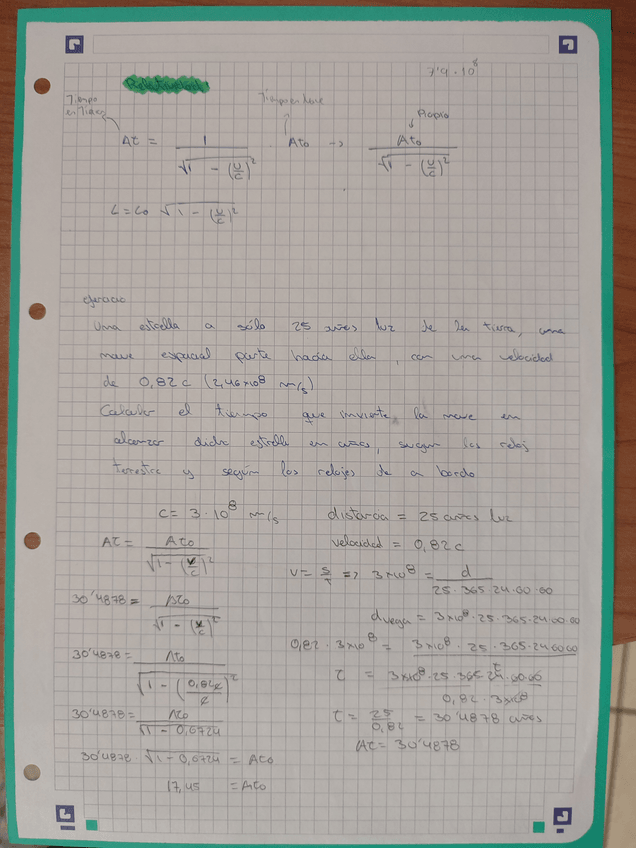 7'9 · 10⁸
Relatividad
Tiempo en Tierra
Tiempo en nave
Propio
Δt = 1 / √(1 - (v/c)²) · Δt₀ → Δt₀ / √(1 - (v/c)²)
L = L₀ √(1 - (v/c)²)
ejercicio
Una estrella a sólo 25 años luz de la tierra, una
nave espacial parte hacia ella, con una velocidad
de 0,82 c (2,46×10⁸ m/s)
Calcular el tiempo que invierte la nave en
alcanzar dicha estrella en años, según los reloj
terrestre y según los relojes de a bordo
c = 3 · 10⁸ m/s
Δt = Δt₀ / √(1 - (v/c)²)
30'4878 = Δt₀ / √(1 - (v/c)²)
30'4878 = Δt₀ / √(1 - (0,82c/c)²)
30'4878 = Δt₀ / √(1 - 0,6724)
30'4878 · √(1 - 0,6724) = Δt₀
17,45 = Δt₀
distancia = 25 años luz
velocidad = 0,82 c
v = s/t => 3×10⁸ = d / 25·365·24·60·60
dvega = 3×10⁸ · 25·365·24·60·60
0,82 · 3×10⁸ = 3×10⁸ · 25·365·24·60·60 / t
t = 3×10⁸·25·365·24·60·60 / 0,82·3×10⁸
t = 25 / 0,82 = 30'4878 años
Δt = 30'4878